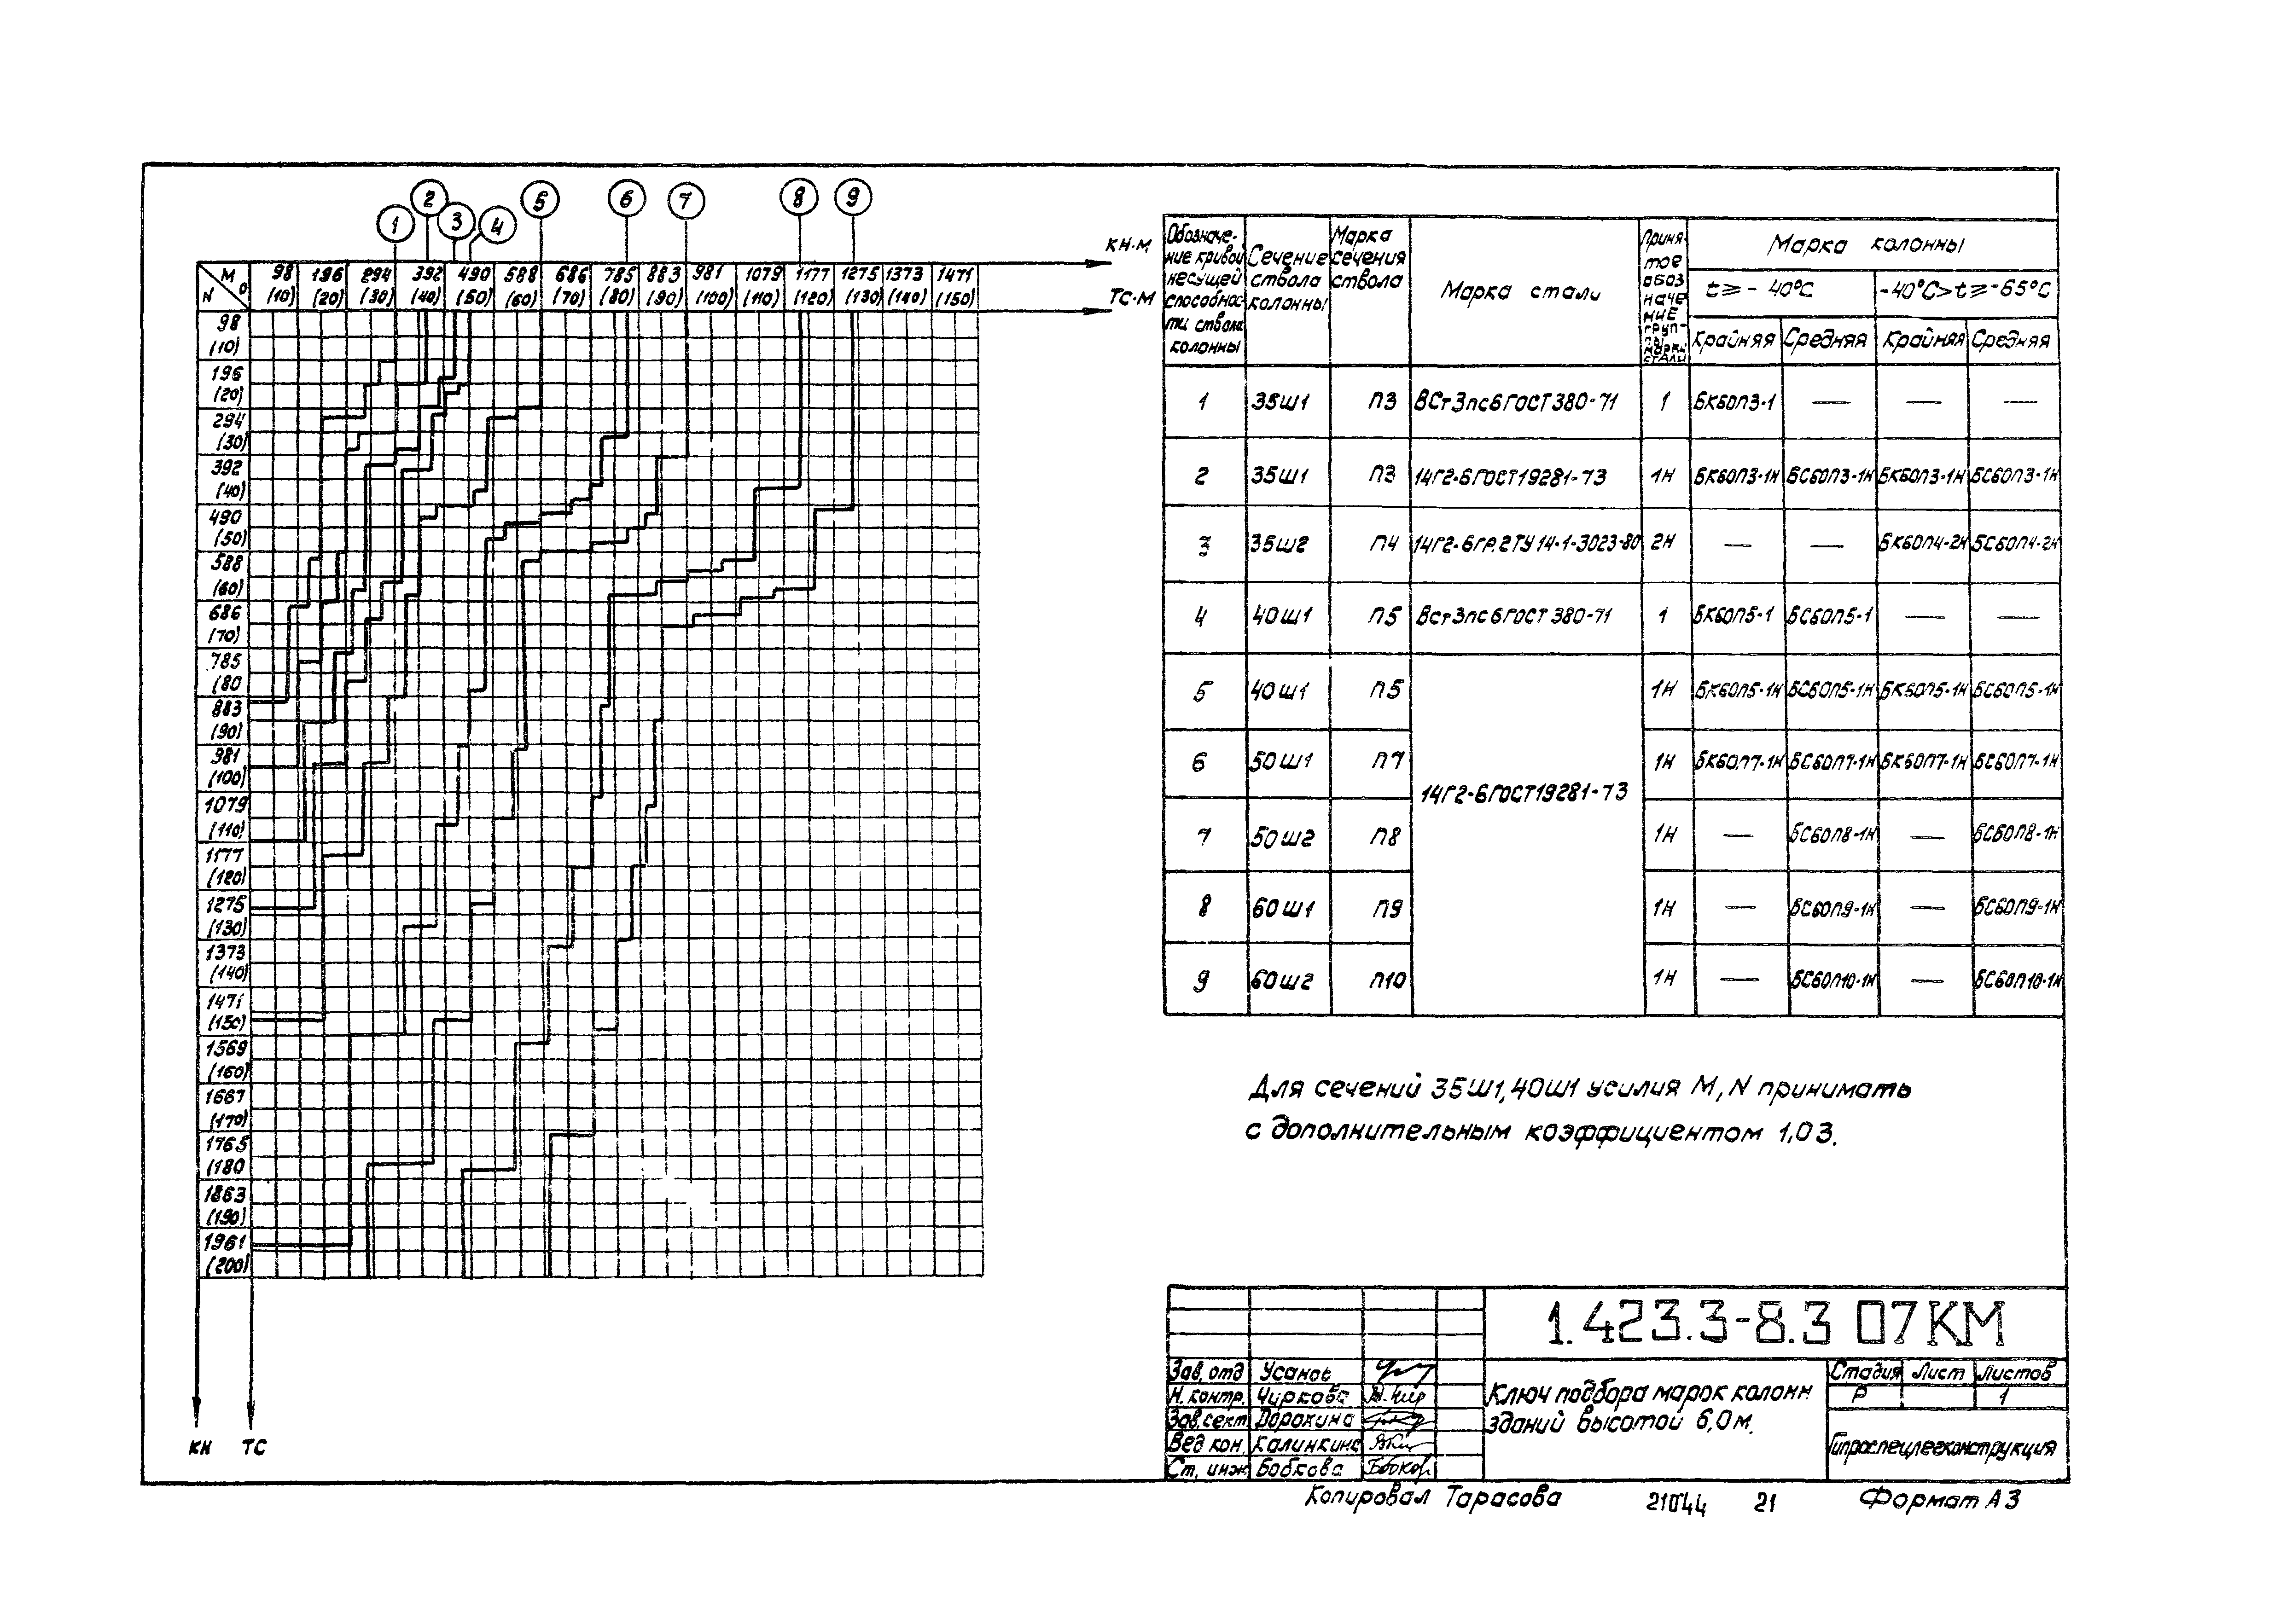 1 2 3 4 5 6 7 8 9
КН·М
ТС·М
М 0 N
98 196 294 392 490 588 686 785 883 981 1079 1177 1275 1373 1471
(10) (20) (30) (40) (50) (60) (70) (80) (90) (100) (110) (120) (130) (140) (150)
98
(10)
196
(20)
294
(30)
392
(40)
490
(50)
588
(60)
686
(70)
785
(80
883
(90)
981
(100)
1079
(110)
1177
(120)
1275
(130)
1373
(140)
1471
(150)
1569
(160)
1667
(170)
1765
(180
1863
(190)
1961
(200)
КН ТС
Обозначе-
ние кривой
несущей
способнос-
ти ствола
колонны
Сечение
ствола
колонны
Марка
сечения
ствола
Марка стали
Приня-
тое
обоз
наче
ние
груп-
пы
марки
стали
Марка колонны
t ≥ - 40°С
-40°С>t≥-65°С
Крайняя Средняя Крайняя Средняя
1 35Ш1 П3 ВСт3пс6ГОСТ380-71 1 БК60П3-1 — — —
2 35Ш1 П3 14Г2-6ГОСТ19281-73 1Н БК60П3-1Н БС60П3-1Н БК60П3-1Н БС60П3-1Н
3 35Ш2 П4 14Г2-6гр.2ТУ14-1-3023-80 2Н — — БК60П4-2Н БС60П4-2Н
4 40Ш1 П5 ВСт3пс6ГОСТ380-71 1 БК60П5-1 БС60П5-1 — —
5 40Ш1 П5 1Н БК60П5-1Н БС60П5-1Н БК60П5-1Н БС60П5-1Н
6 50Ш1 П7 14Г2-6ГОСТ19281-73 1Н БК60П7-1Н БС60П7-1Н БК60П7-1Н БС60П7-1Н
7 50Ш2 П8 1Н — БС60П8-1Н — БС60П8-1Н
8 60Ш1 П9 1Н — БС60П9-1Н — БС60П9-1Н
9 60Ш2 П10 1Н — БС60П10-1Н — БС60П10-1Н
Для сечений 35Ш1, 40Ш1 усилия М, N принимать
с дополнительным коэффициентом 1,03.
1.423.3-8.3 07КМ
Зав. отд Усанов
Н. контр. Чиркова
Зав.сект. Дорохина
Вед кон. Калинкина
Ст. инж Бобкова
Ключ подбора марок колонн
зданий высотой 6,0м.
Стадия Лист Листов
Р 1
Гипроспецлегконструкция
Копировал Тарасова 21044 21 Формат А3